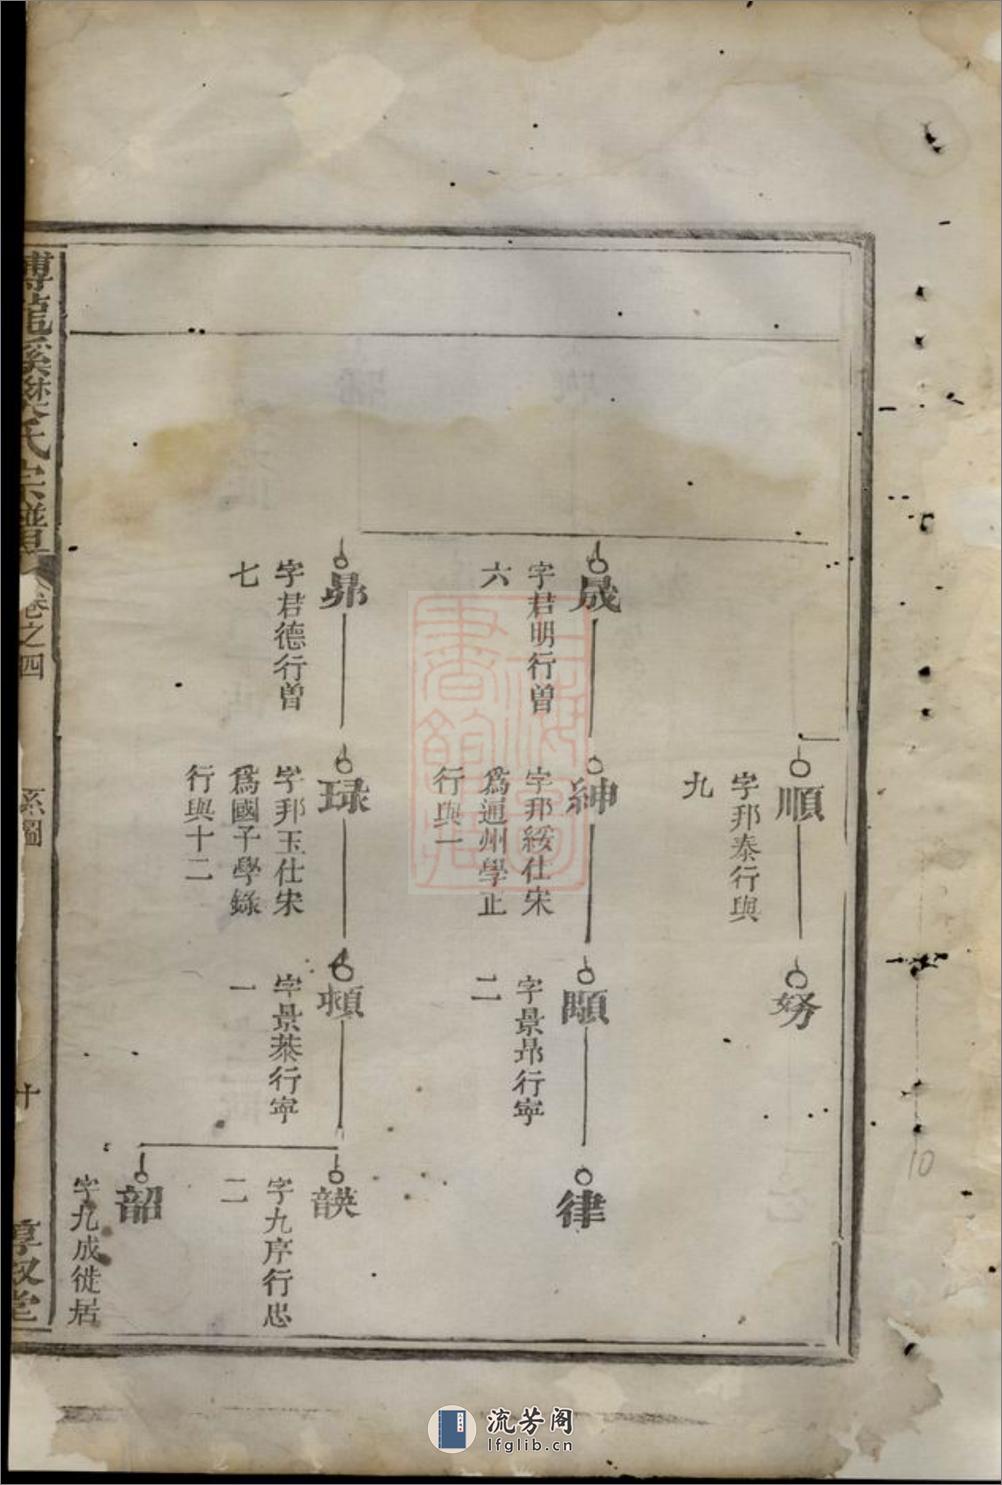 順
字邦泰行與
九
晟
字君明行曾
六
紳
字邦綏仕宋
爲通州學正
行與一
頤
字景昂行寧
二
律
昴
字君德行曾
七
琭
字邦玉仕宋
爲國子學錄
行與十二
字景恭行寧
一
韺
字九序行思
二
韶
字九成徙居
龍溪樊氏宗譜
卷之四
系圖
十
惇叙堂
上海圖書館藏
10
流芳阁
lfglib.cn